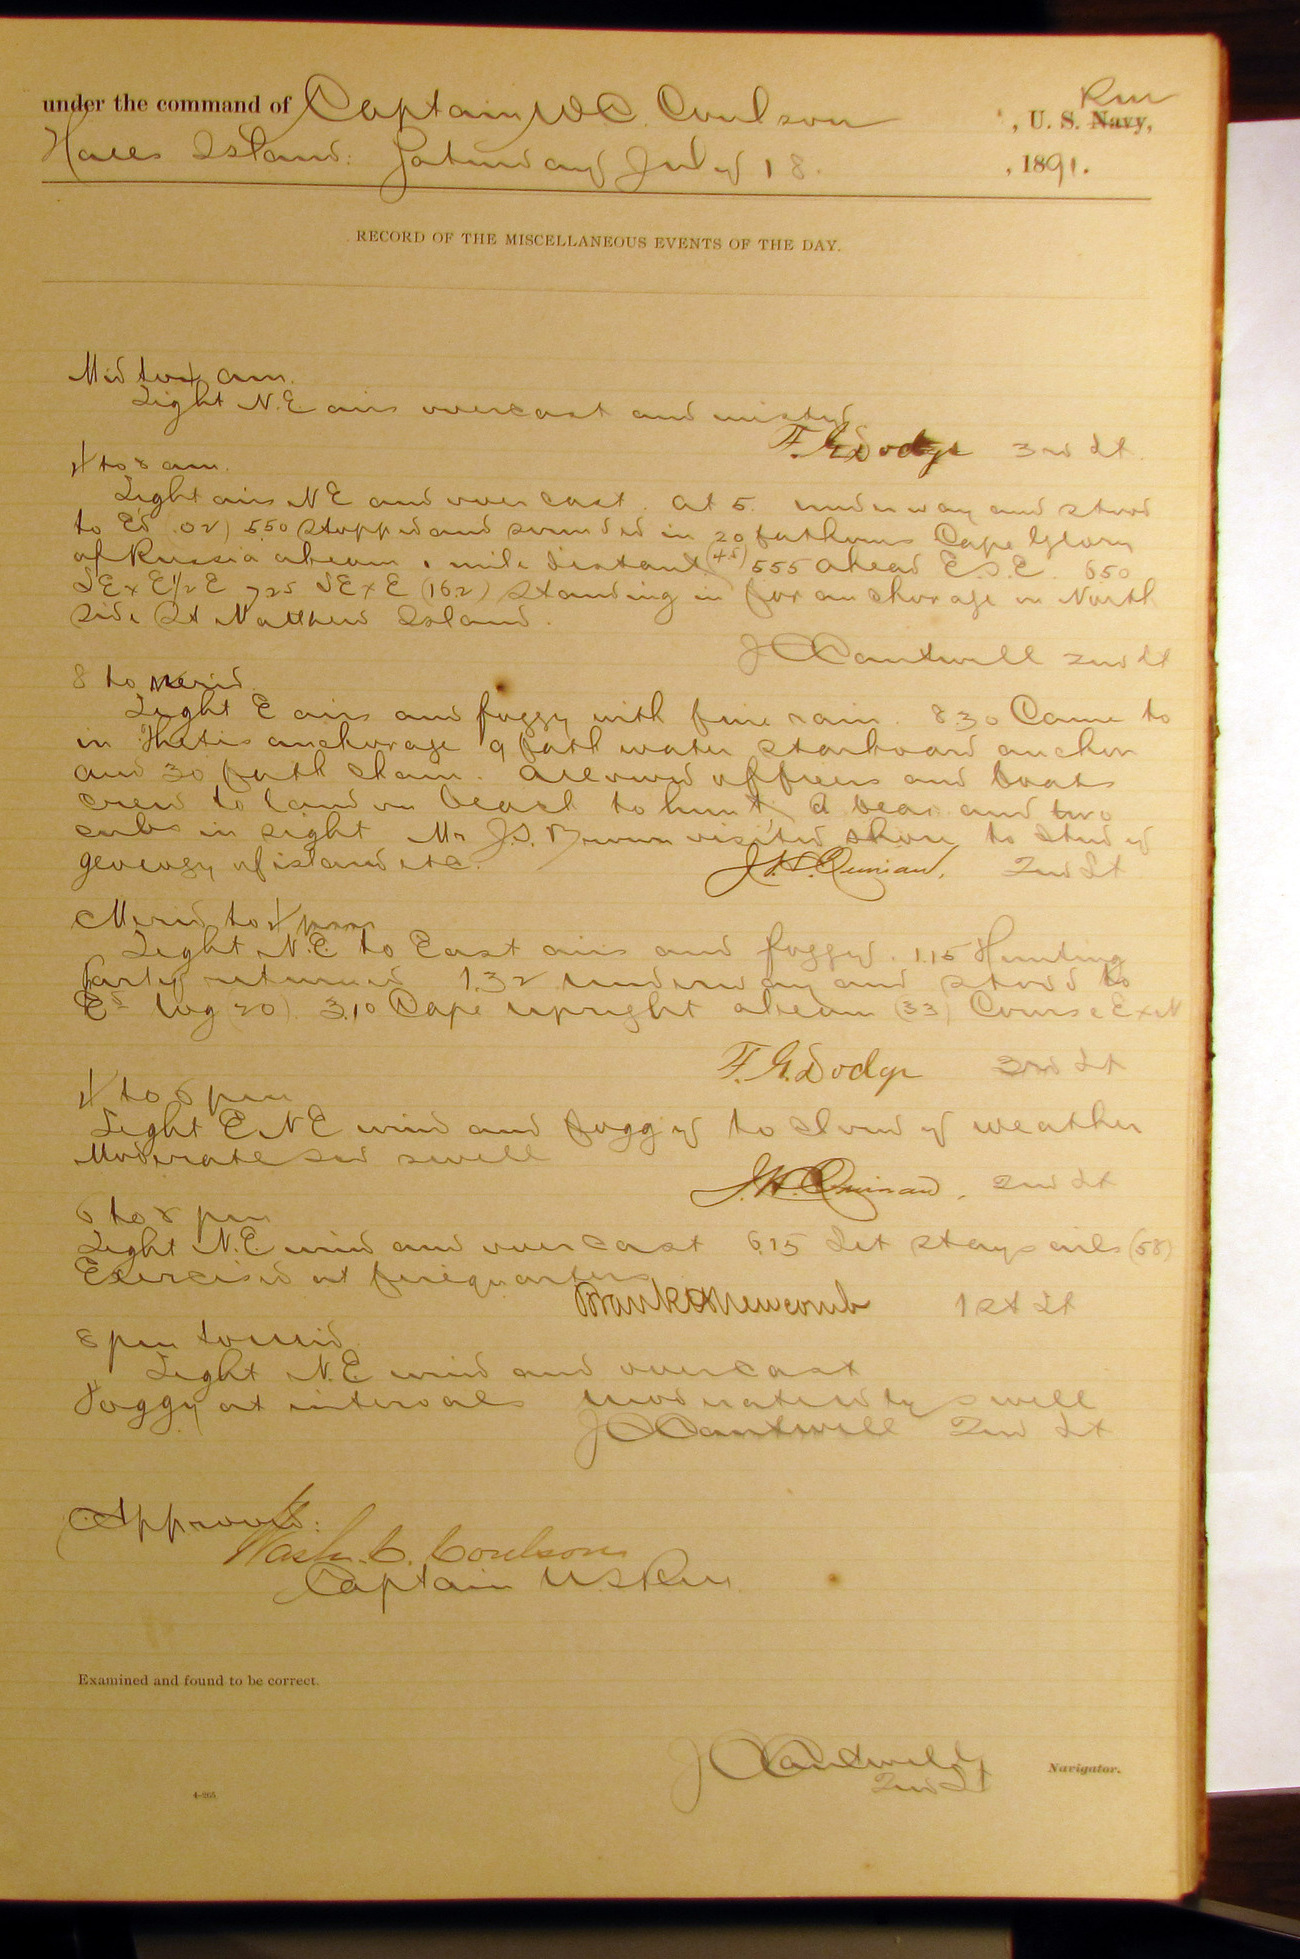 under the command of Captain W.C. Coulson , U. S. Navy, RM
Halls Island. Saturday July 18. , 1891.
RECORD OF THE MISCELLANEOUS EVENTS OF THE DAY.
Mid to 4 am.
Light N.E airs overcast and misty
F. G. Dodge 3rd Lt.
4 to 8 am.
Light airs NE and overcast. At 5. underway and stood
to Ed (02) 5.50 stopped and sounded in 20 fathoms Cape Glory
of Russia abeam 1 mile distant (4.5) 555 ahead E.S.E. 650
SE x E½E 725 SE x E (162) standing in for anchorage on North
side St Matthew Island.
J C Cantwell 2nd Lt
8 to merid.
Light E airs and foggy with fine rain. 830 Came to
in Thetis anchorage 9 fath water starboard anchor
and 30 fath chain. Allowed officers and boats
crew to land on beach to hunt, a bear and two
cubs in sight Mr J.S. visited shore to study
geology of island etc.
J.H. Quinan. 2nd Lt
Merid to 4 pm
Light N.E. to East airs and foggy. 1.15 Hunting
party returned 1.32 underway and stood to
Ed log (20). 3.10 Cape upright abeam (33) Course E x N
F. G. Dodge 3rd Lt
4 to 6 pm
Light ENE wind and foggy to cloudy weather
Moderate sea swell
J.H. Quinan. 2nd Lt
6 to 8 pm
Light N.E. wind and overcast 6.15 Set staysails (58)
Exercised at firequarters
Frank H Newcomb 1st Lt
8 pm to mid
Light N.E. wind and overcast
Foggy at intervals swell
J C Cantwell 2nd Lt
Approved:
Wash. C. Coulson
Captain USRM
Examined and found to be correct.
J C Cantwell Navigator.
2nd Lt
4-265